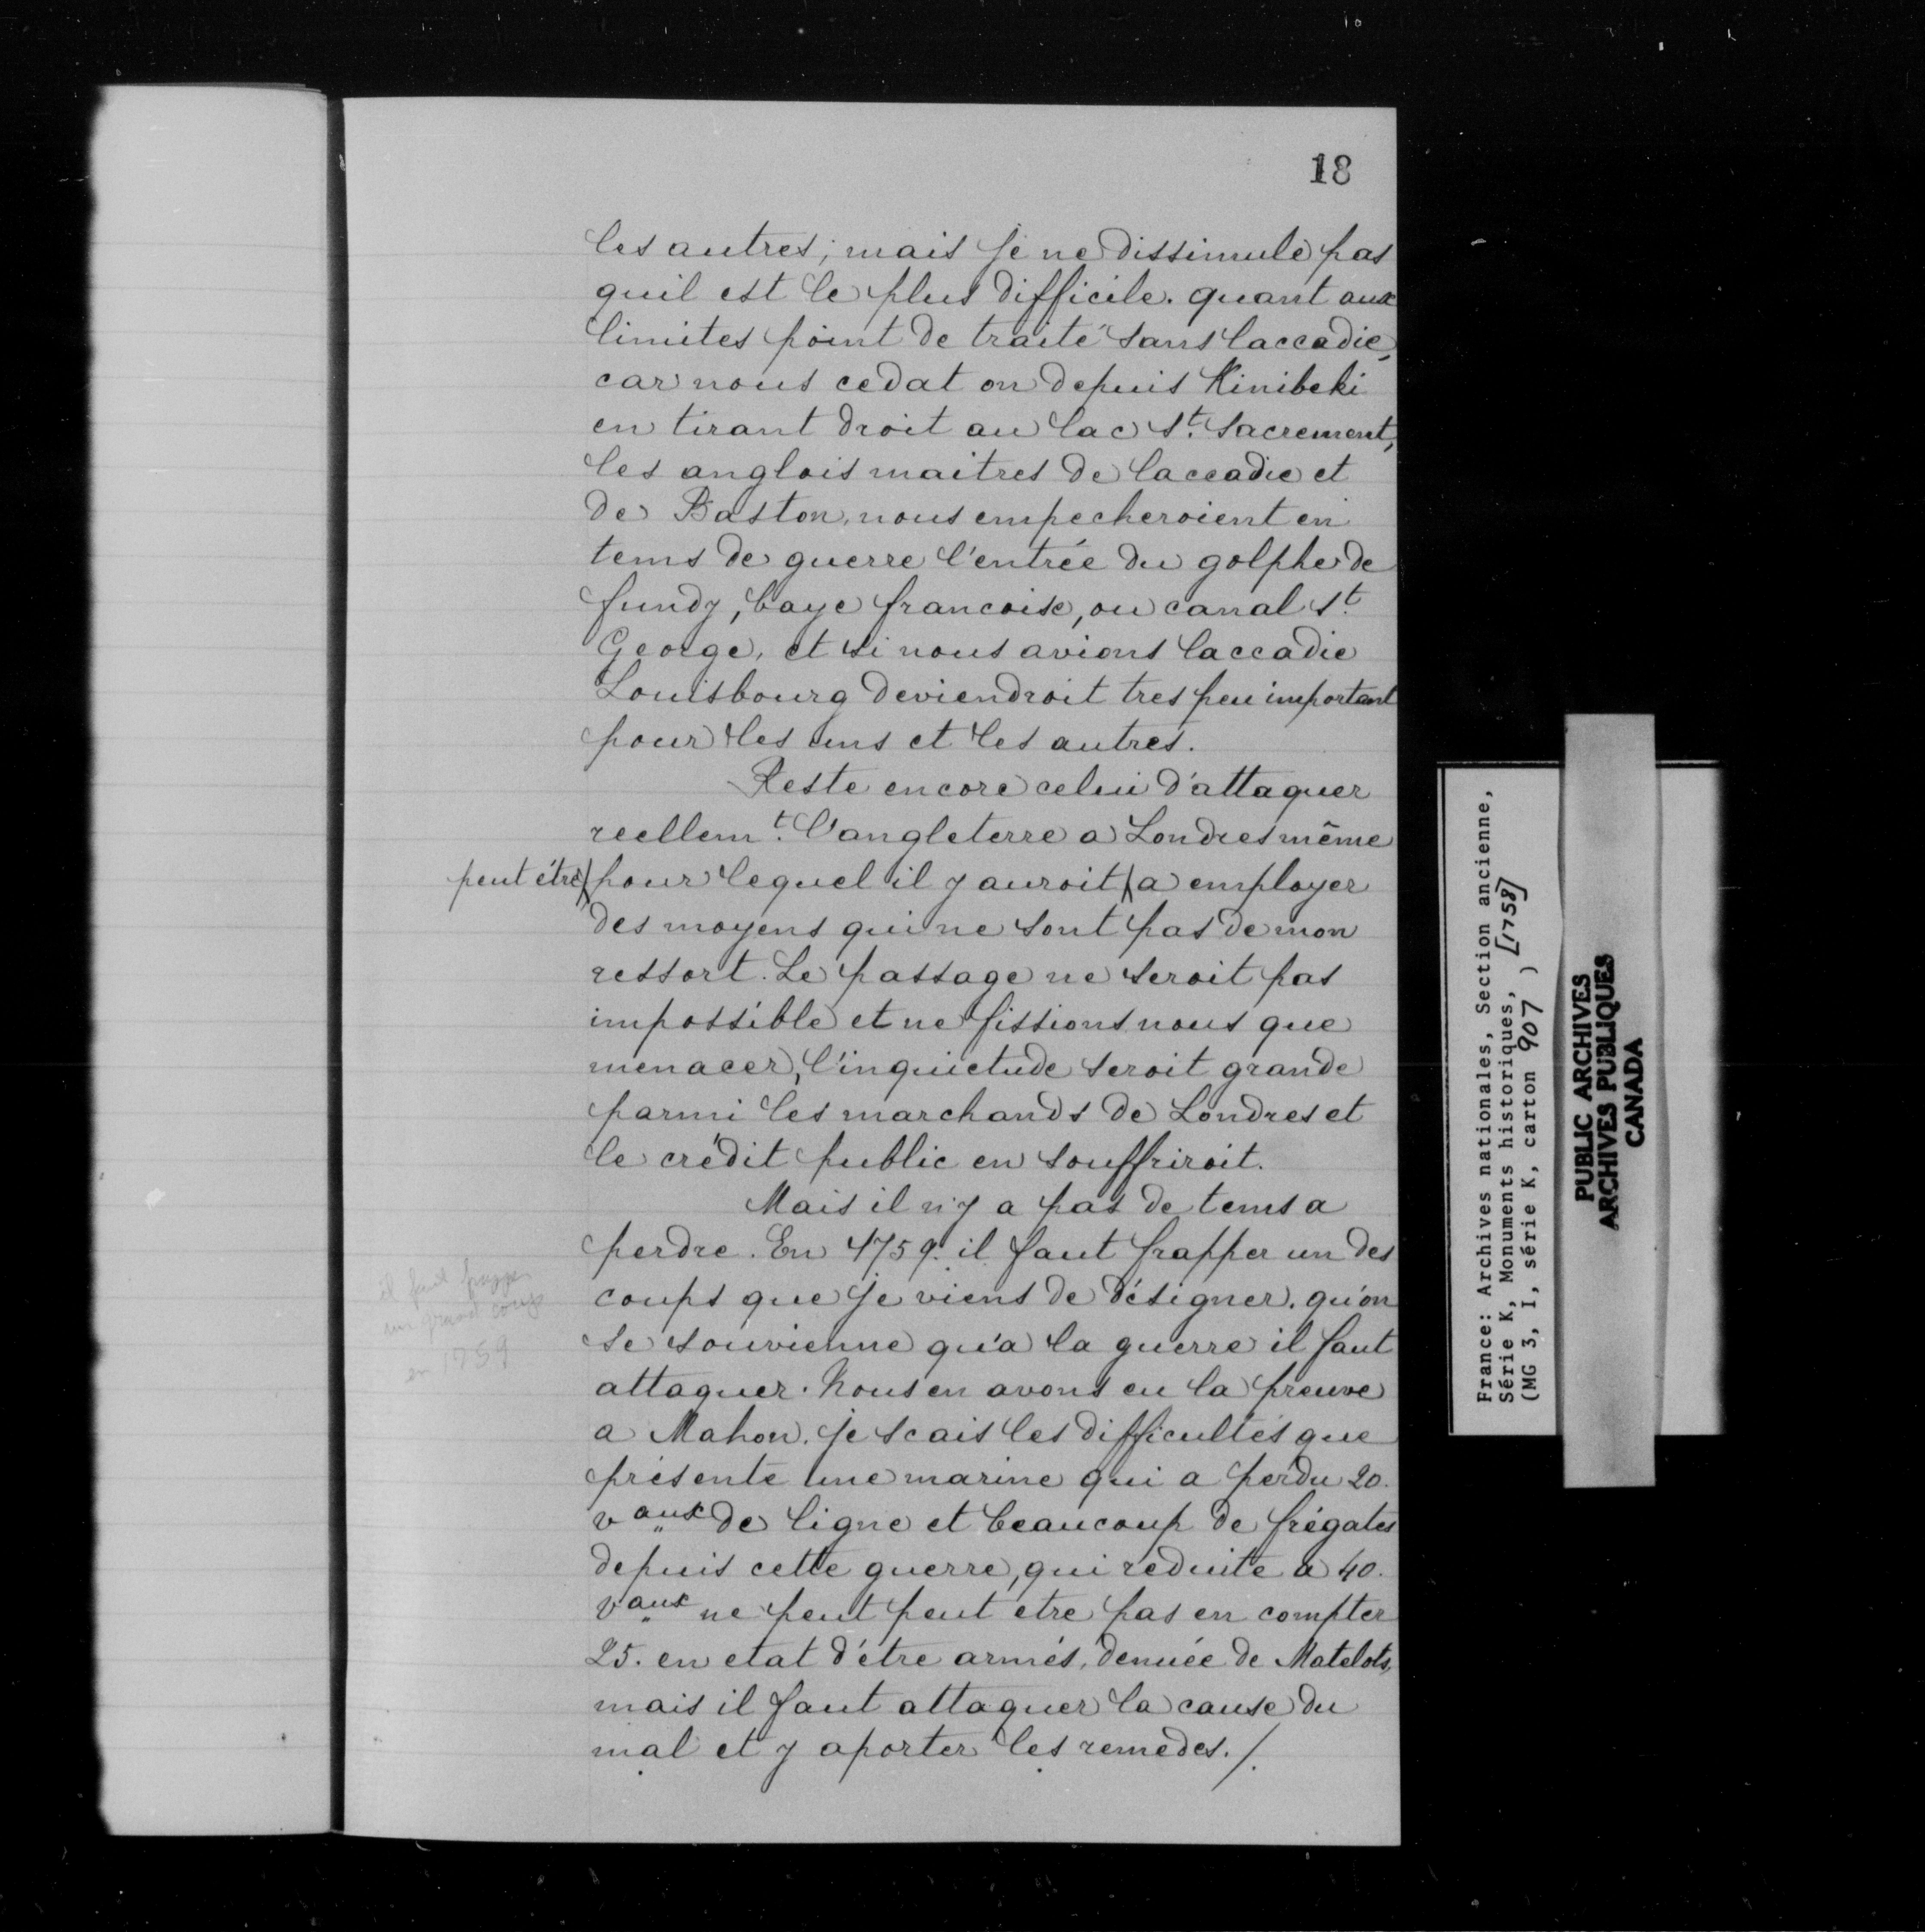 18
les autres; mais je ne dissimule pas
quil est le plus difficile. quant aux
limites point de traité sans laccadie,
car nous cedat on depuis Kinibeki
en tirant droit au lac St. Sacrement,
les anglois maitres de laccadie et
de Baston, nous empecheroient en
tems de guerre l'entrée du golphe de
fundy, baye francoise, ou canal St.
George, et si nous avions laccadie
Louisbourg deviendroit tres peu important
pour les uns et les autres.
Reste encore celui d'attaquer
reellemt. l'angleterre a Londres même
peut étre pour lequel il y auroit a employer
des moyens qui ne sont pas de mon
ressort. Le passage ne seroit pas
impossible et ne fissions nous que
menacer, l'inquietude seroit grande
parmi les marchands de Londres et
le crédit public en souffriroit.
Mais il n'y a pas de tems a
perdre. En 1759. il faut frapper un des
coups que je viens de désigner. qu'on
se souvienne qu'a la guerre il faut
attaquer. Nous en avons eu la preuve
a Mahon. je scais les difficultés que
présente une marine qui a perdu 20.
vaux de ligne et beaucoup de frégates
depuis cette guerre, qui reduite a 40.
vaux ne peut peut etre pas en compter
25. en etat d'étre armés, denuée de Matelots,
mais il faut attaquer la cause du
mal et y aporter les remedes./.
il faut frapper
un grand coup
en 1759
France: Archives nationales, Section ancienne,
Série K, Monuments historiques, [1758]
(MG 3, I, série K, carton 907 )
PUBLIC ARCHIVES
ARCHIVES PUBLIQUES
CANADA